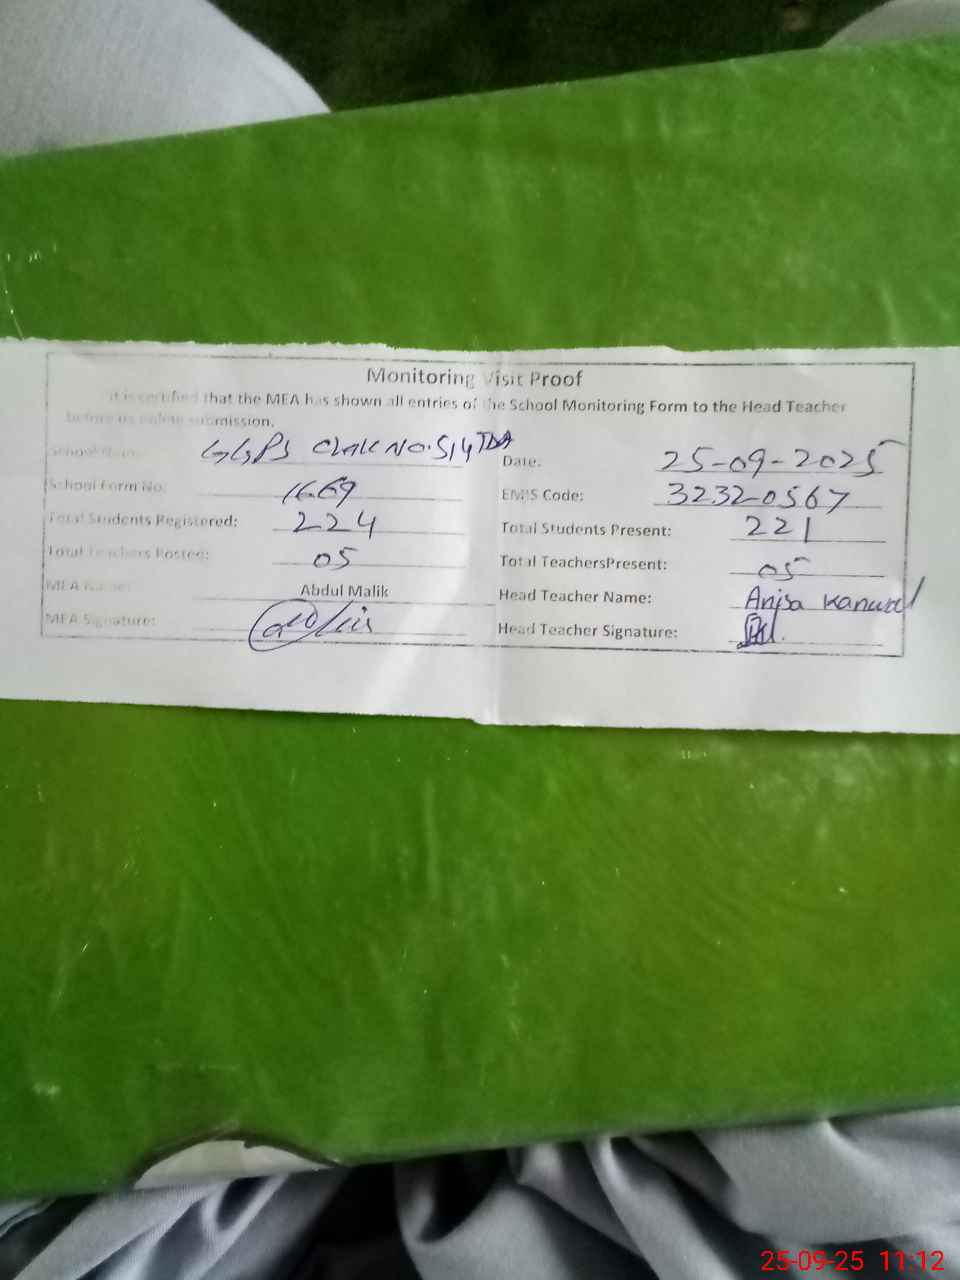 Monitoring Visit Proof
It is certified that the MEA has shown all entries of the School Monitoring Form to the Head Teacher
before its online submission.
School Name: GGPS Chak No. 514 TDA
Date: 25-09-2025
School Form No: 1669
EMIS Code: 32320567
Total Students Registered: 224
Total Students Present: 221
Total Teachers Posted: 05
Total TeachersPresent: 05
MEA Name: Abdul Malik
Head Teacher Name: Anisa Kanwal
MEA Signature:
Head Teacher Signature:
25-09-25 11:12